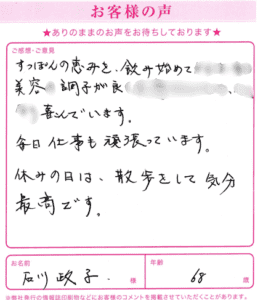 お客様の声
★ありのままのお声をお待ちしております★
ご感想・ご意見
すっぽんの恵みを、飲み始めて
美容 調子が良 、
喜んでいます。
毎日仕事も頑張っています。
休みの日は、散歩をして気分
最高です。
お名前 石川政子 様 年齢 68 歳
※弊社発行の情報誌印刷物などにお客様のコメントを掲載させていただくことがあります。